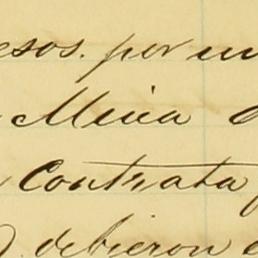 esos. por un
Mina
Contrata
debieron